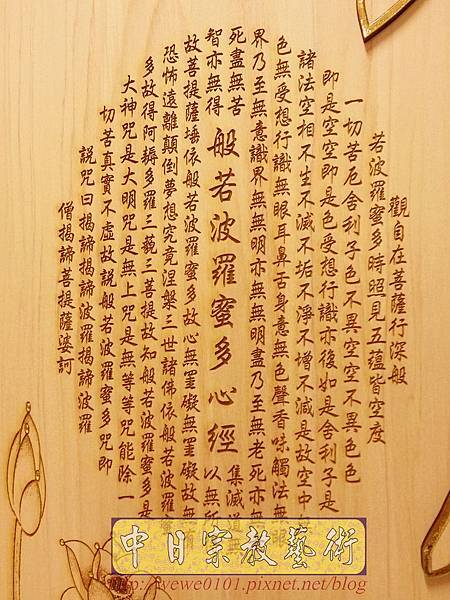 觀自在菩薩行深般
若波羅蜜多時照見五蘊皆空度
一切苦厄舍利子色不異空空不異色色
即是空空即是色受想行識亦復如是舍利子是
諸法空相不生不滅不垢不淨不增不減是故空中
色無受想行識無眼耳鼻舌身意無色聲香味觸法無眼
界乃至無意識界無無明亦無無明盡乃至無老死亦無
死盡無苦集滅道無
智亦無得以無所
般若波羅蜜多心經
故菩提薩埵依般若波羅蜜多故心無罣礙無罣礙故無有
恐怖遠離顛倒夢想究竟涅槃三世諸佛依般若波羅蜜
多故得阿耨多羅三藐三菩提故知般若波羅蜜多是
大神咒是大明咒是無上咒是無等等咒能除一
切苦真實不虛故說般若波羅蜜多咒即
說咒曰揭諦揭諦波羅揭諦波羅
僧揭諦菩提薩婆訶
中日宗教藝術
http://yewe0101.pixnet.net/blog